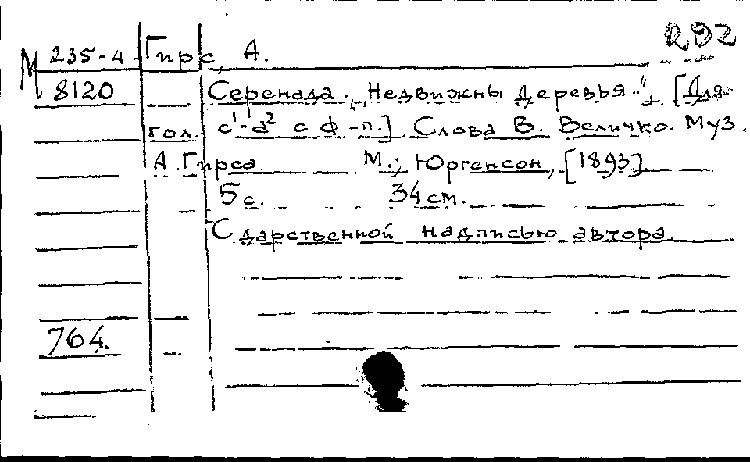 292
М 235-4 Гирс, А.
8120 Серенада. „Недвижны деревья.." [Для
гол. c¹-a² с ф-п.] Слова В. Величко. Муз.
А. Гирса М., Юргенсон, [1893]
5 с. 34 см.
С дарственной надписью автора.
764.